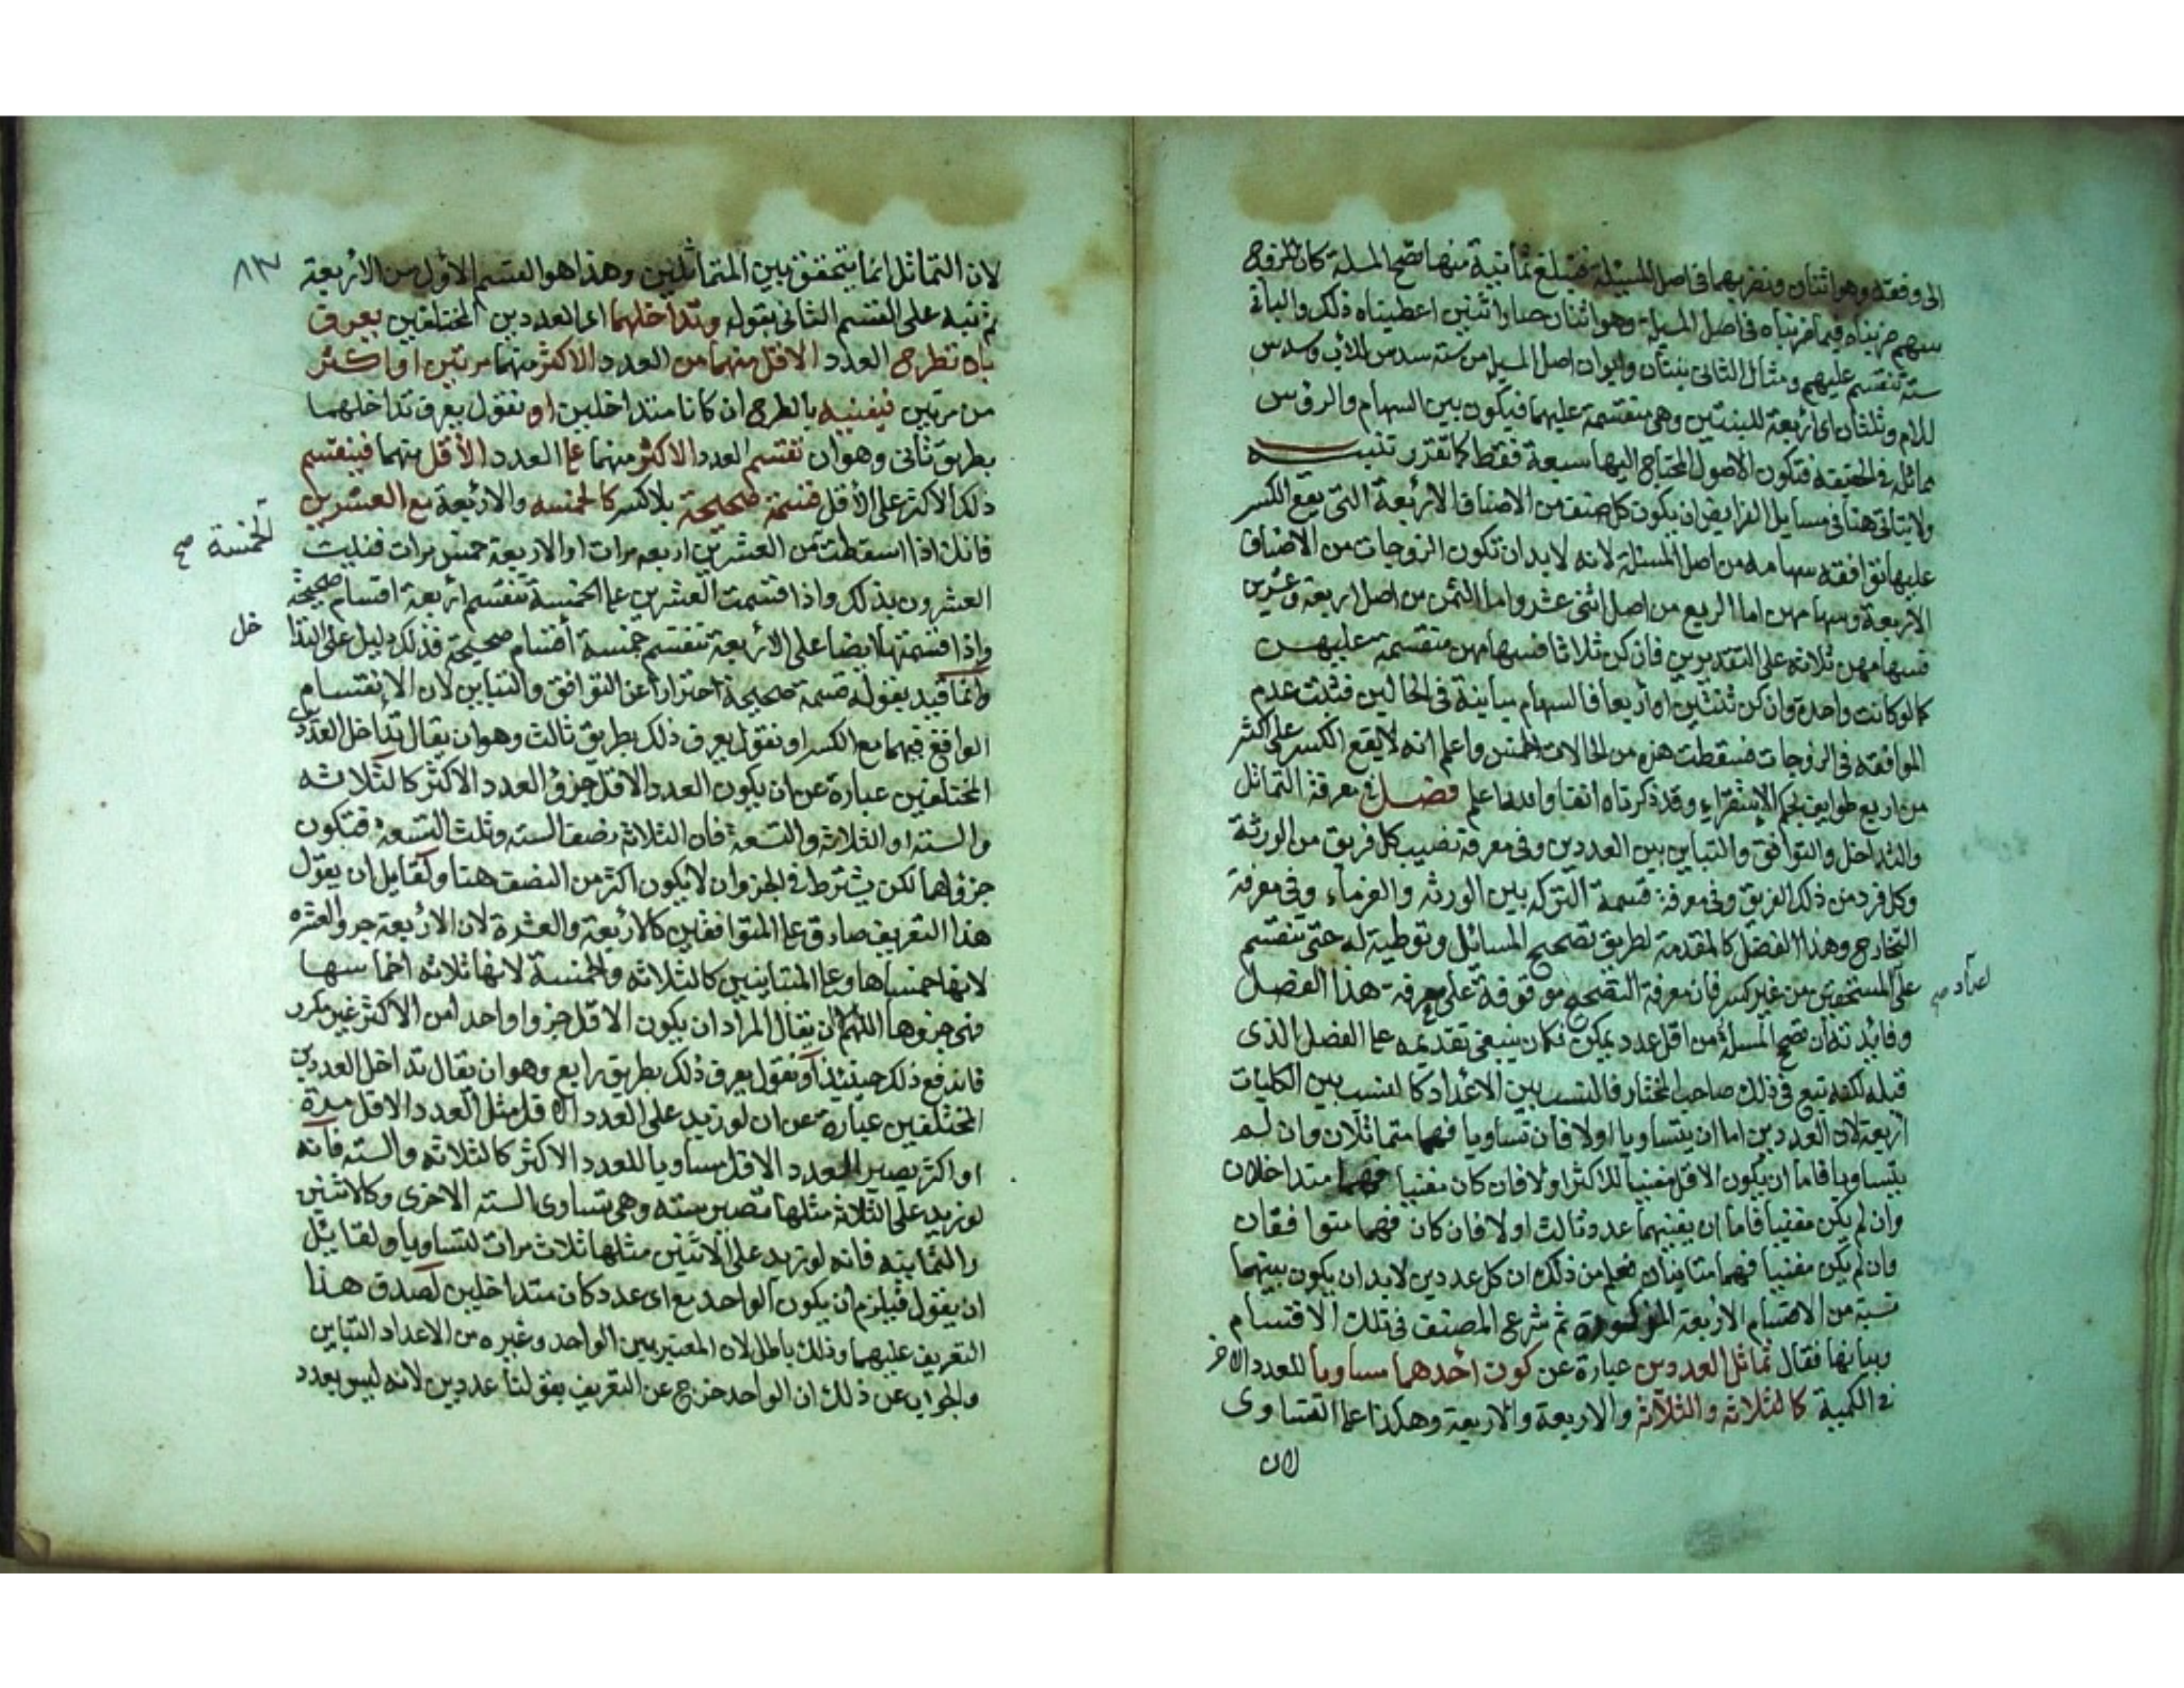 الى وفقه وهو اثنان ونضربهما فى اصل المسئلة فتبلغ ثمانية منها تصح المسلة كان للزوج
سهم ضربناه فيما ضربناه فى اصل المسيلة وهو اثنان صار اثنين اعطيناه ذلك والباقى
ستة تنقسم عليهم ومثال الثانى بنتان وابوان اصل المسيلة من ستة سدس للاب وسدس
للام وثلثان اى اربعة للبنتين وهى منقسمة عليهما فيكون بين السهام والرؤس
مماثلة فى الحقيقه فتكون الاصول المحتاج اليها سبعة فقط كما تقرر تنبيه
ولا يتاتى هنا فى مسايل الفرايض ان يكون كل صنف من الاصناف الاربعة التى يقع الكسر
عليها توافقه سهامه من اصل المسئلة لانه لابد ان تكون الزوجات من الاصناف
الاربعة وسهامهن اما الربع من اصل اثنى عشر واما الثمن من اصل اربعة وعشرين
فسهامهن ثلاثة على التقديرين فان كن ثلاثا فسهامهن منقسمة عليهن
كما لو كانت واحدة وان كن ثنتين او اربعا فالسهام مباينة فى الحالين فثبت عدم
الموافقه فى الزوجات فسقطت هذه من الحالات الخمس واعلم انه لا يقع الكسر على اكثر
من اربع طوايف بحكم الاستقراء وقد ذكرناه انفا والله اعلم فصل فى معرفة التماثل
والتداخل والتوافق والتباين بين العددين وفى معرفة نصيب كل فريق من الورثة
وكل فرد من ذلك الفريق وفى معرفة قسمة التركه بين الورثه والغرماء وفى معرفة
التخارج وهذا الفصل كالمقدمة لطريق تصحيح المسائل وتوطية له حتى تنقسم
على المستحقين من غير كسر فان معرفة التصحيح موقوفة على معرفة هذا الفصل
وفايدته ان تصح المسلة من اقل عدد يمكن فكان ينبغى تقديمه على الفصل الذى
قبله لكنه تبع فى ذلك صاحب المختار فالنسب بين الاعداد كالنسب بين الكليات
اربعة لان العددين اما ان يتساويا اولا فان تساويا فهما متماثلان وان لم
يتساويا فاما ان يكون الاقل مفنيا للاكثر اولا فان كان مفنيا فهما متداخلان
وان لم يكن مفنيا فاما ان يفنيهما عدد ثالث اولا فان كان فهما متوافقان
وان لم يكن مفنيا فهما متباينان فعلم من ذلك ان كل عددين لابد ان يكون بينهما
نسبة من الاقسام الاربعة المذكورة ثم شرع المصنف فى تلك الاقسام
وبيانها فقال تماثل العددين عبارة عن كون احدهما مساويا للعدد الاخر
فى الكمية كالثلاثه والثلاثة والاربعة والاربعة وهكذا على التساوى
لان
اعداد صح
٨٣
لان التماثل انما يتحقق بين المتماثلين وهذا هو القسم الاول من الاربعة
ثم نبه على القسم الثانى بقوله وتداخلهما اى العددين المختلفين يعرف
بان تطرح العدد الاقل منهما من العدد الاكثر منهما مرتين او اكثر
من مرتين فيفنيه بالطرح ان كانا متداخلين او نقول يعرف تداخلهما
بطريق ثانى وهو ان تقسم العدد الاكثر منهما على العدد الاقل منهما فينقسم
ذلك الاكثر على الاقل قسمة صحيحة بلا كسر كالخمسه والاربعة مع العشرين
فانك اذا اسقطت من العشرين اربعه مرات او الاربعة خمس مرات فنيت
العشرون بذلك واذا قسمت العشرين على الخمسة تنقسم اربعة اقسام صحيحة
واذا قسمتها ايضا على الاربعة تنقسم خمسة اقسام صحيحة فذلك دليل على التدا
وانما قيد بقوله قسمة صحيحة احترازا عن التوافق والتباين لان الانقسام
الواقع فيهما مع الكسر او نقول يعرف ذلك بطريق ثالث وهو ان يقال تداخل العددين
المختلفين عبارة عن ان يكون العدد الاقل جزؤ العدد الاكثر كالثلاثه
والسته او الثلاثة والتسعة فان الثلاثة نصف السته وثلث التسعة فتكون
جزؤاهما لكن يشترط فى الجزء ان لا يكون اكثر من النصف هنا ولقايل ان يقول
هذا التعريف صادق على المتوافقين كالاربعة والعشرة لان الاربعة جزء العشره
لانها خمساها وعلى المتباينين كالثلاثه والخمسة لانها ثلاثه اخماسها
فهى جزؤها اللهم ان يقال المراد ان يكون الاقل جزوا واحدا من الاكثر غير مكرر
فاندفع ذلك حينئذ او نقول يعرف ذلك بطريق رابع وهو ان يقال تداخل العددين
المختلفين عبارة عن ان لو زيد على العدد الاقل مثل العدد الاقل مرة
او اكثر يصير العدد الاقل مساويا للعدد الاكثر كالثلاثه والسته فانه
لو زيد على الثلاثة مثلها تصير سته وهى تساوى السته الاخرى وكالاثنين
والثمانيه فانه لو زيد على الاثنين مثلها ثلاث مرات لتساويا ولقايل
ان يقول فيلزم ان يكون الواحد مع اى عدد كان متداخلين لصدق هذا
التعريف عليهما وذلك باطل لان المعتبر بين الواحد وغيره من الاعداد التباين
والجواب عن ذلك ان الواحد خرج عن التعريف بقولنا عددين لانه ليس بعدد
الخمسة صح
خل